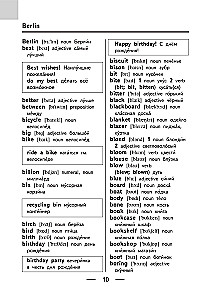 Berlin
Berlin [bɜːˈlɪn] noun Берлин
best [best] adjective самый
лучший
Best wishes! Наилучшие
пожелания!
do my best делать всё
возможное
better [ˈbetə] adjective лучше
between [bɪˈtwiːn] preposition
между
bicycle [ˈbaɪsɪkl] noun
велосипед
big [bɪɡ] adjective большой
bike [baɪk] noun велосипед
ride a bike кататься на
велосипеде
billion [ˈbɪljən] numeral, noun
миллиард
bin [bɪn] noun мусорная
корзина
recycling bin мусорный
контейнер
birch [bɜːtʃ] noun берёза
bird [bɜːd] noun птица
birth [bɜːθ] noun рождение
birthday [ˈbɜːθdeɪ] noun день
рождения
birthday party вечеринка
в честь дня рождения
Happy birthday! С днём
рождения!
biscuit [ˈbɪskɪt] noun печенье
bison [ˈbaɪsn] noun зубр
bit [bɪt] noun кусочек
bite [baɪt] 1 noun укус 2 verb
(bit; bit, bitten) кусать(ся)
bitter [ˈbɪtə] adjective горький
black [blæk] adjective чёрный
blackboard [ˈblækbɔːd] noun
классная доска
blanket [ˈblæŋkɪt] noun одеяло
blazer [ˈbleɪzə] noun пиджак,
куртка
blond [blɒnd] 1 noun блондин
2 adjective светловолосый
bloom [bluːm] verb цвести
blouse [blauz] noun блузка
blow [bləʊ] verb
(blew; blown) дуть
blue [bluː] adjective синий
board [bɔːd] noun доска
boat [bəʊt] noun лодка
body [ˈbɒdɪ] noun тело
bone [bəʊn] noun кость
book [bʊk] noun книга
bookcase [ˈbʊkkeɪs] noun
книжный шкаф
bookshelf [ˈbʊkʃelf] noun
книжная полка
bookshop [ˈbʊkʃɒp] noun
книжный магазин
boot [buːt] noun ботинок
boring [ˈbɔːrɪŋ] adjective
скучный
10